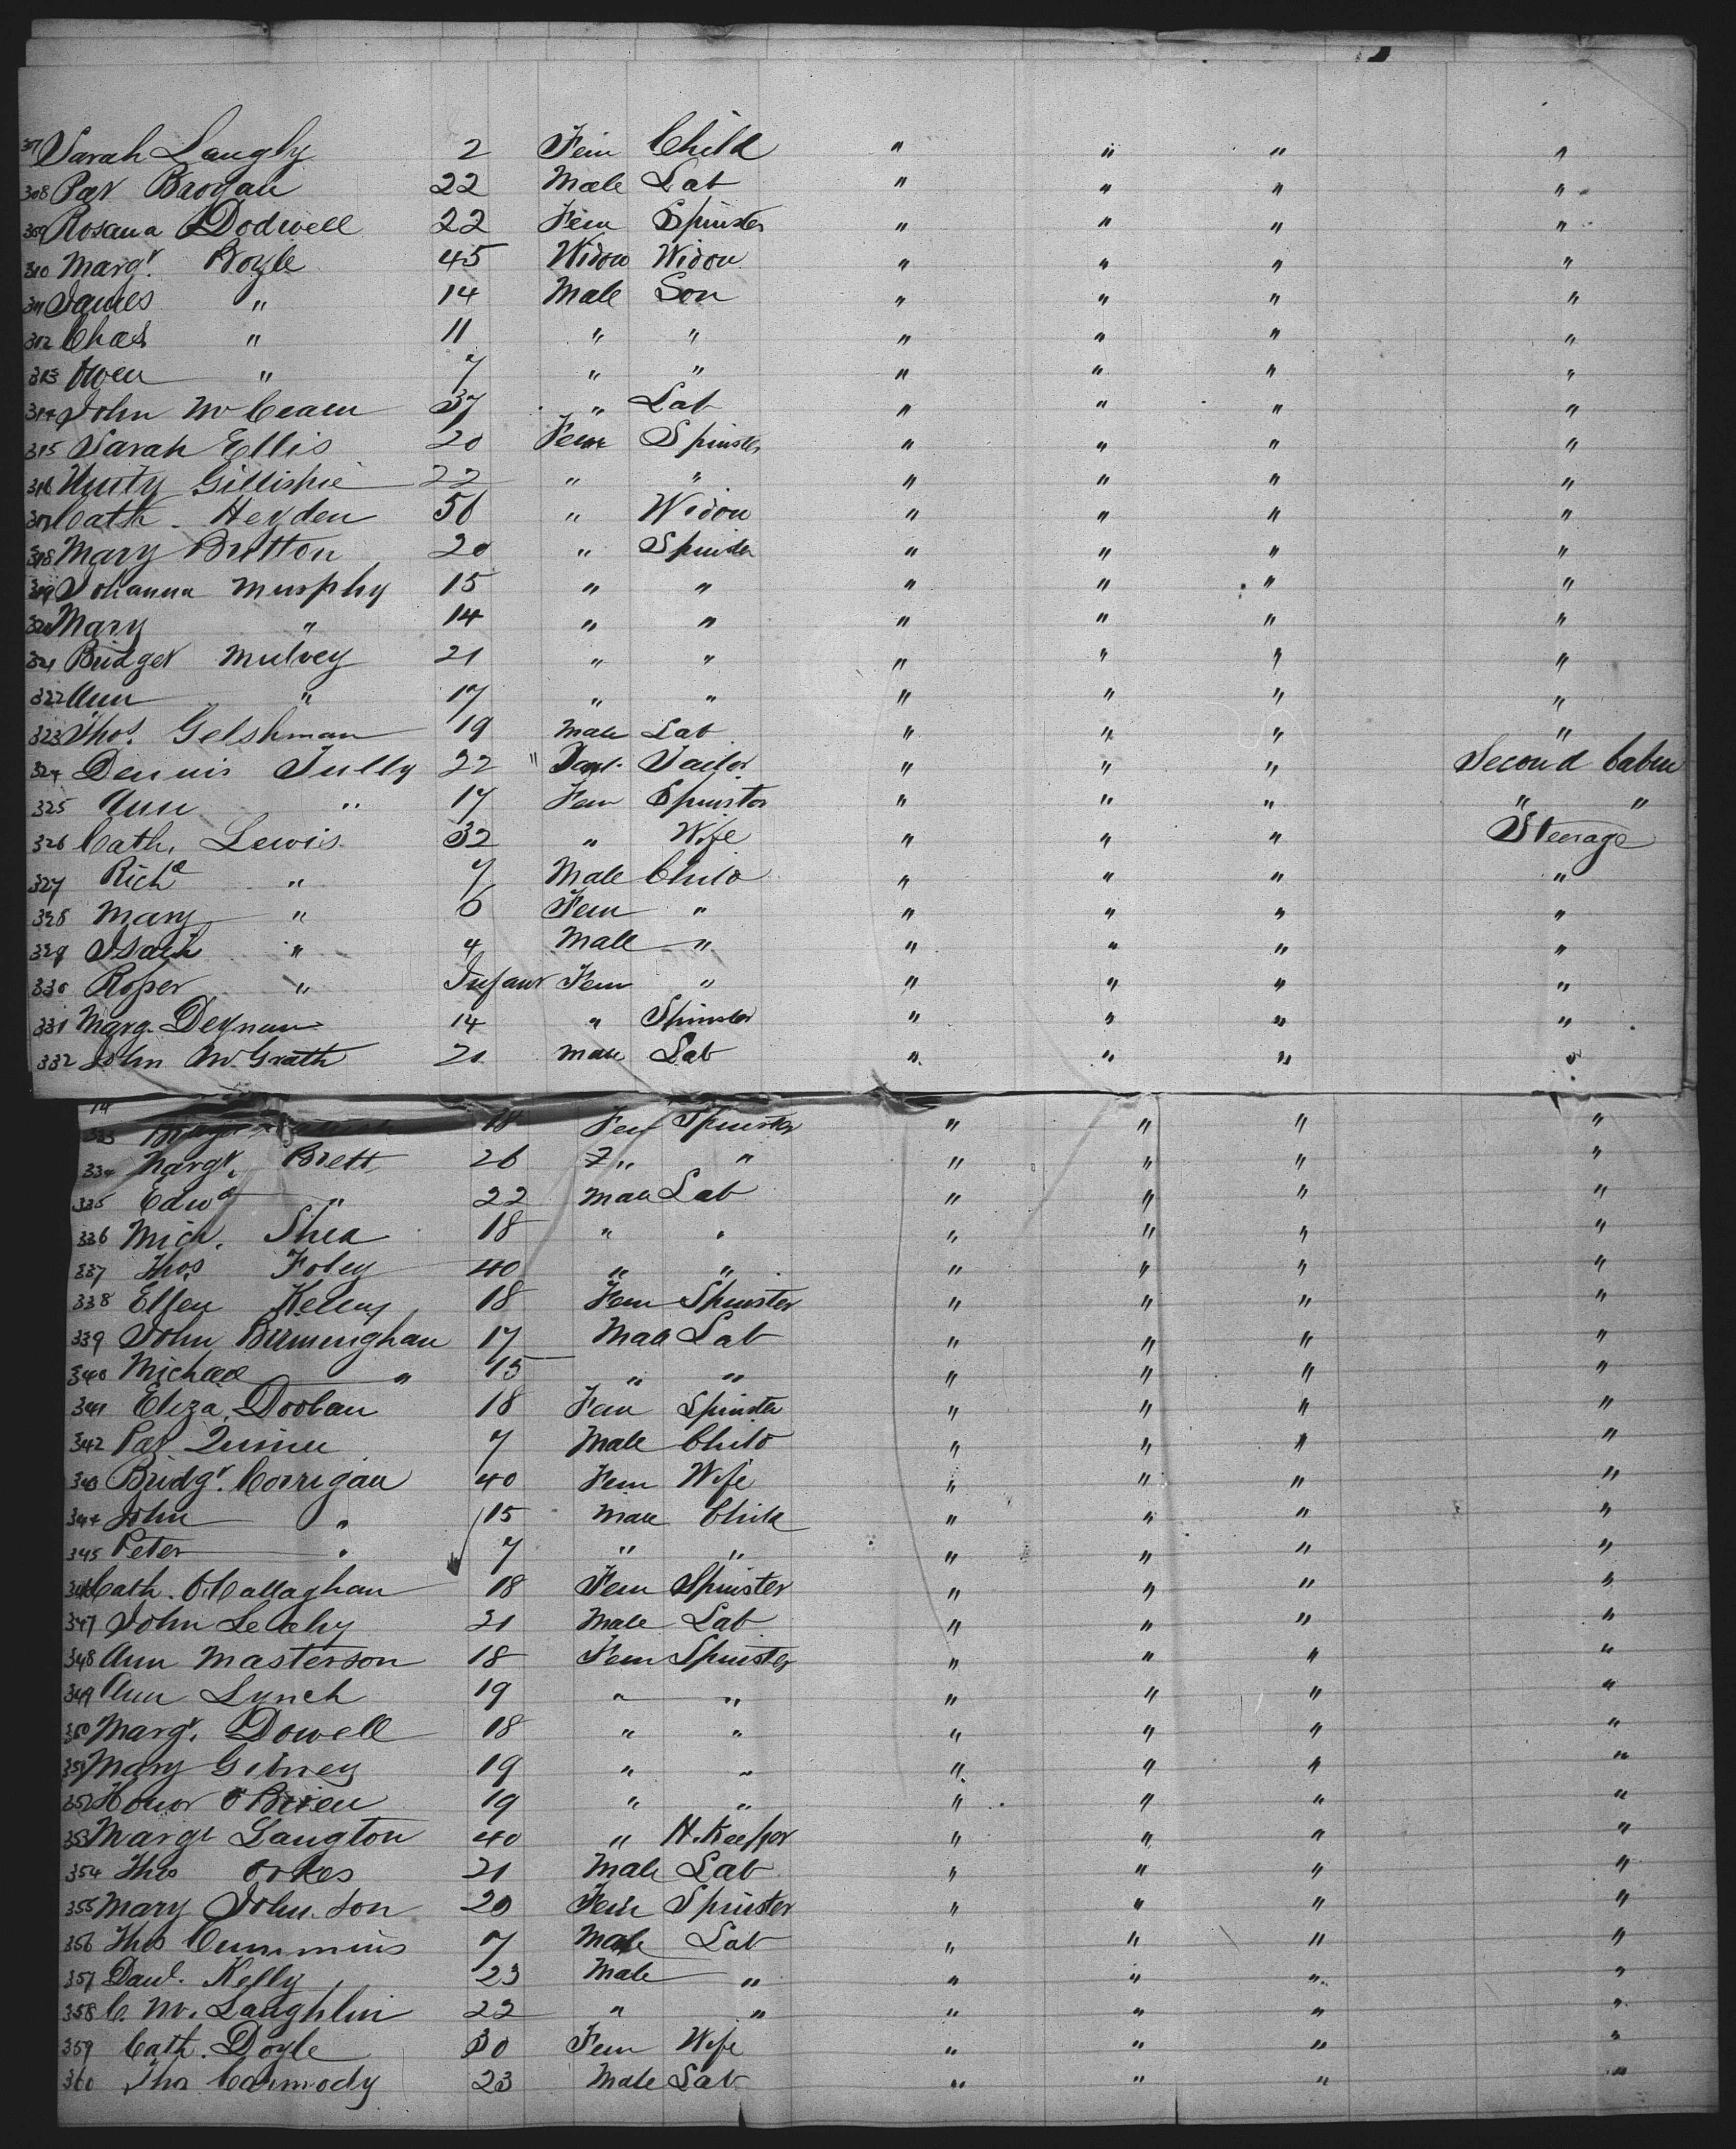 307 Sarah Laugly 2 Fem Child " " " "
308 Pat Brogan 22 Male Lab " " " "
309 Rosana Dodwell 22 Fem Spinster " " " "
310 Margt. Boyle 45 Widow Widow " " " "
311 James " 14 Male Son " " " "
312 Chas " 11 " " " " " "
313 Owen " 7 " " " " " "
314 John McCeam 37 " Lab " " " "
315 Sarah Ellis 20 Fem Spinster " " " "
316 Gillispie 22 " " " " " "
317 Cath. Heyden 56 " Widow " " " "
318 Mary Britton 20 " Spinster " " " "
319 Johanna Murphy 15 " " " " " "
320 Mary " 14 " " " " " "
321 Bridget Mulvey 21 " " " " " "
322 Ann " 17 " " " " " "
323 Thos. Gelshman 19 Male Lab " " " "
324 Dennis Tully 22 " Tailor " " " Second Cabin
325 Ann " 17 Fem Spinster " " " " "
326 Cath. Lewis 32 " Wife " " " Steerage
327 Richd " 7 Male Child " " " "
328 Mary " 6 Fem " " " " "
329 Isaih " 4 Male " " " " "
330 Roper " Infant Fem " " " " "
331 Marg. Deynan 14 " Spinster " " " "
332 John McGrath 21 Male Lab " " " "
14
333 18 Fem Spinster " " " "
334 Margt. Brett 26 " " " " " "
335 Edwd " 22 Male Lab " " " "
336 Mich. Shea 18 " " " " " "
337 Thos Foley 40 " " " " " "
338 Ellen Kelley 18 Fem Spinster " " " "
339 John Birmingham 17 Male Lab " " " "
340 Michael " 15 " " " " " "
341 Eliza Doolan 18 Fem Spinster " " " "
342 Pat Quinn 7 Male Child " " " "
343 Bridgt. Corrigan 40 Fem Wife " " " "
344 John " 15 Male Child " " " "
345 Peter " 7 " " " " " "
346 Cath. O'Callaghan 18 Fem Spinster " " " "
347 John Leahy 21 Male Lab " " " "
348 Ann Masterson 18 Fem Spinster " " " "
349 Ann Lynch 19 " " " " " "
350 Margt. Dowell 18 " " " " " "
351 Mary Gibney 19 " " " " " "
352 Honor O'Brien 19 " " " " " "
353 Margt Langton 40 " H.Keeper " " " "
354 Thos Orkes 21 Male Lab " " " "
355 Mary Johnson 20 Fem Spinster " " " "
356 Thos Cummins 7 Male Lab " " " "
357 Danl. Kelly 23 Male " " " " "
358 C. Mc.Laughlin 22 " " " " " "
359 Cath. Doyle 30 Fem Wife " " " "
360 Thos Carmody 23 Male Lab " " " "